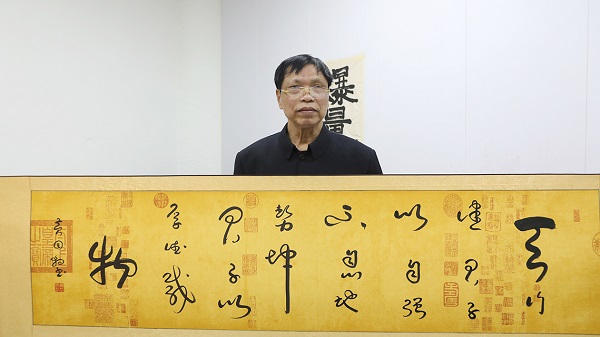 爆
天行
健君子
以自強
不息地
勢坤
君子以
厚德載
物